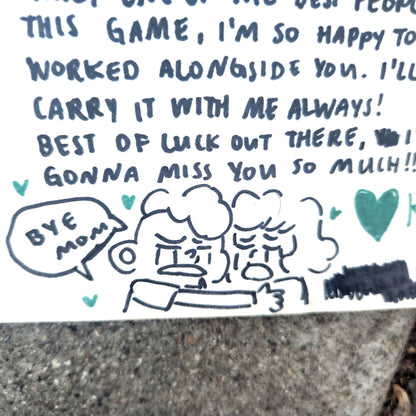 ONE OF THE BEST PEOPL
THIS GAME, I'M SO HAPPY TO
WORKED ALONGSIDE YOU. I'LL
CARRY IT WITH ME ALWAYS!
BEST OF LUCK OUT THERE, I
GONNA MISS YOU SO MUCH!!
BYE
MOM